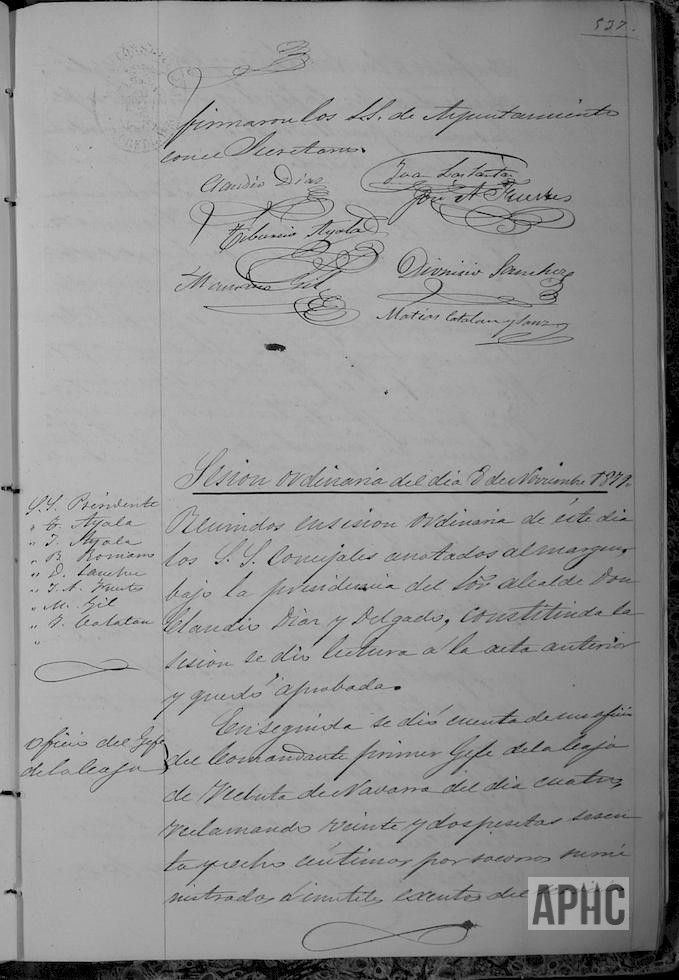 537.
firmaron los S.S. de Ayuntamiento
con el Secretario.
Claudio Diaz
Juan Lastanta
José A. Fuertes
Tiburcio Ayala
Dionisio Sanchez
Mariano Gil
Matias Catalan y Sanz
Sesion ordinaria del dia 8 de Noviembre 1879.
S.S. Presidente
" T. Ayala
" B. Romano
" D. Sanchez
" J. A. Fuertes
" M. Gil
" Catalan
"
Reunidos en sesion ordinaria de éste dia
los S.S. Concejales anotados al margen,
bajo la presidencia del Sor. Alcalde Don
Claudio Diaz y Delgado, constituida la
sesion se dió lectura á la acta anterior
y quedó aprobada.
Oficio del Gefe
de la Caja
Enseguida se dió cuenta de un oficio
del Comandante primer Gefe de la Caja
de Recluta de Navarra del dia cuatro,
reclamando veinte y dos pesetas sesen
ta y ocho céntimos por socorros sumi
nistrados á inutiles exentos del servicio
APHC